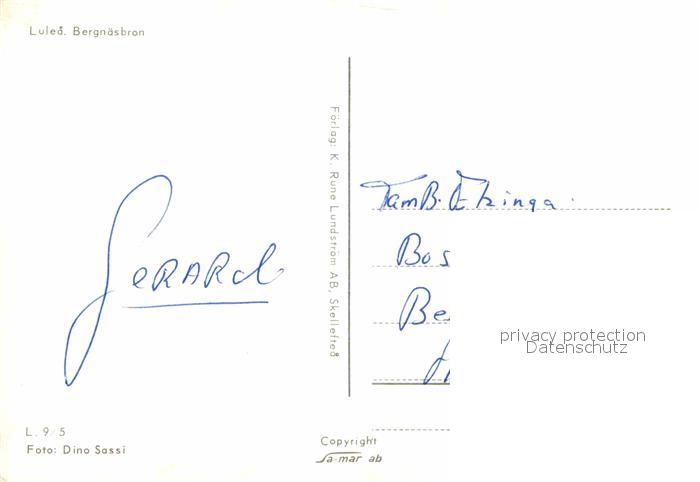 Luleå. Bergnäsbron
Gerard
L. 9/5
Foto: Dino Sassi
Förlag: K. Rune Lundström AB, Skellefteå
Copyright
Sa-mar ab
Fam B.
Bos
Be
privacy protection
Datenschutz